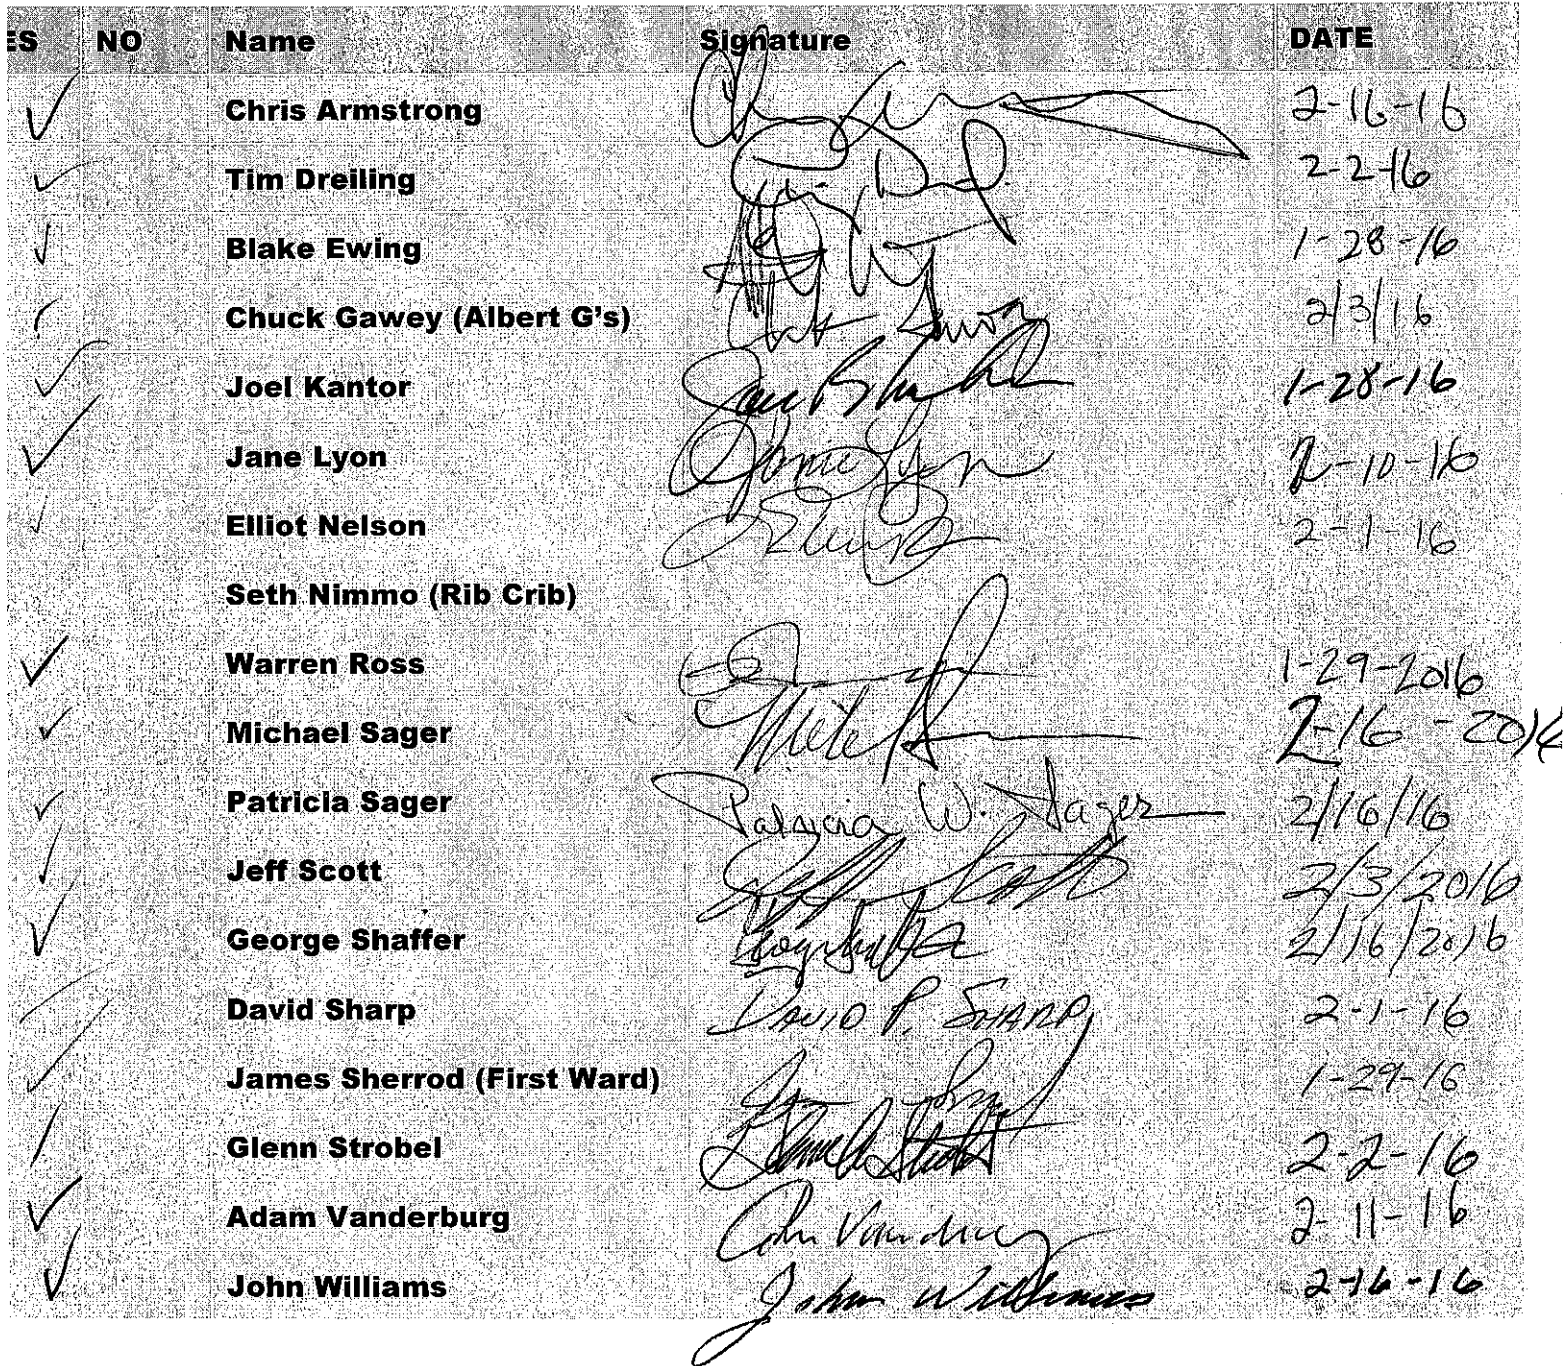 ES NO Name Signature DATE
✓ Chris Armstrong 2-16-16
✓ Tim Dreiling 2-2-16
✓ Blake Ewing 1-28-16
✓ Chuck Gawey (Albert G's) 2/3/16
✓ Joel Kantor 1-28-16
✓ Jane Lyon Jane Lyon 2-10-16
✓ Elliot Nelson 2-1-16
Seth Nimmo (Rib Crib)
✓ Warren Ross 1-29-2016
✓ Michael Sager 2-16-2016
✓ Patricia Sager Patricia W. Sager 2/16/16
✓ Jeff Scott Jeff Scott 2/3/2016
✓ George Shaffer 2/16/2016
✓ David Sharp DAVID P. SHARP 2-1-16
✓ James Sherrod (First Ward) 1-29-16
✓ Glenn Strobel 2-2-16
✓ Adam Vanderburg 2-11-16
✓ John Williams John Williams 2-16-16